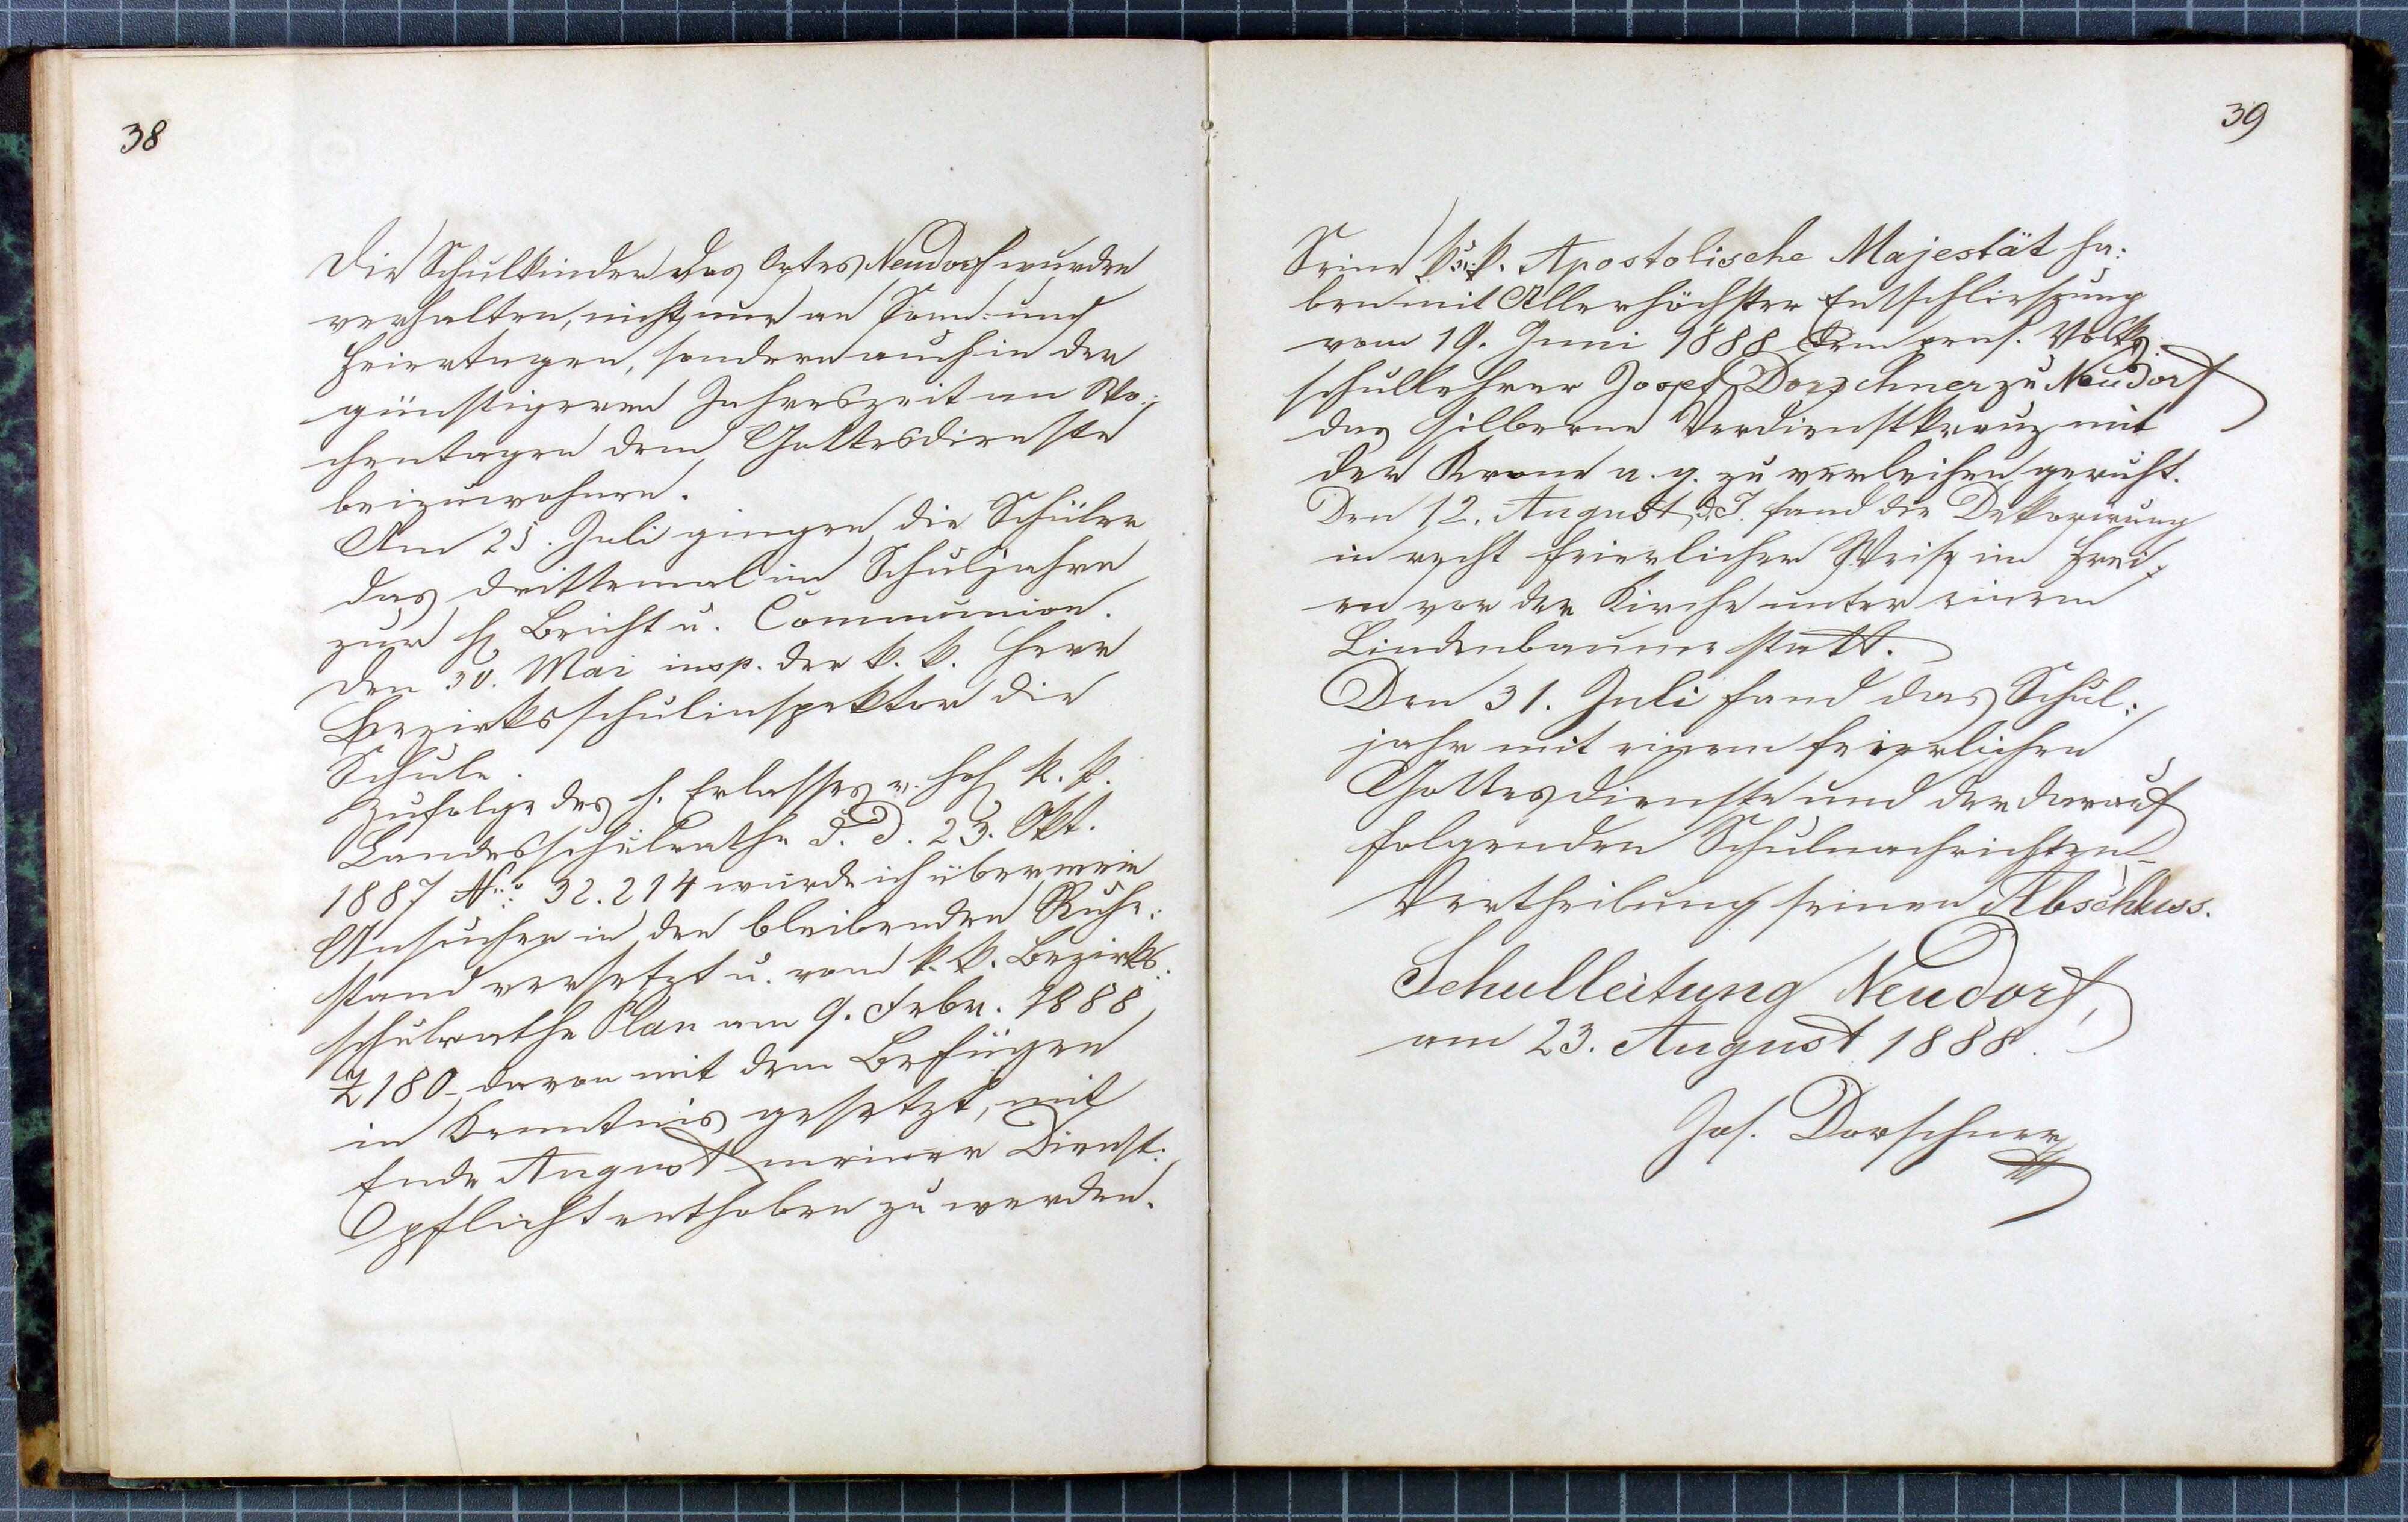 38
Die Schulkinder des Ortes Neudorf wurden
verhalten, nicht nur an Sonn- und
Feiertagen, sondern auch in der
günstigeren Jahreszeit an Wo:
chentagen dem Gottesdienste
beizuwohnen.
Am 25. Juli gingen die Schüler
das drittemal im Schuljahre
zur hl Beicht u. Communion.
Den 30. Mai insp. der k. k. Herr
Bezirksschulinspektor die
Schule.
Zufolge des h. Erlasses v. hoh k. k.
Landesschulrathe d. d. 23. Okt.
1887 No: 32.214 wurde ich über mein
Ansuchen in den bleibenden Ruhe:
stand versetzt u. vom k. k. Bezirks:
schulrathe Plan am 9. Febr. 1888
Z 180 davon mit dem Beifügen
in Kenntnis gesetzt, mit
Ende August meiner Dienst:
pflicht enthoben zu werden.
39
Seine k. u. k. Apostolische Majestät ha:
ben mit Allerhöchster Entschließung
vom 19. Juni 1888 dem pens. Volks:
schullehrer Josef Dorschner zu Neudorf
das silberne Verdienstkreuz mit
der Krone a. g. zu verleihen geruht.
Den 12. August d. J. fand die Dekorirung
in recht feierlicher Weise im Frei:
en vor der Kirche unter einem
Lindenbaume statt.
Den 31. Juli fand das Schul:
jahr mit einem feierlichen
Gottesdienste und der darauf
folgenden Schulnachrichten-
Vertheilung seinen Abschluss.
Schulleitung Neudorf,
am 23. August 1888.
Jos. Dorschner